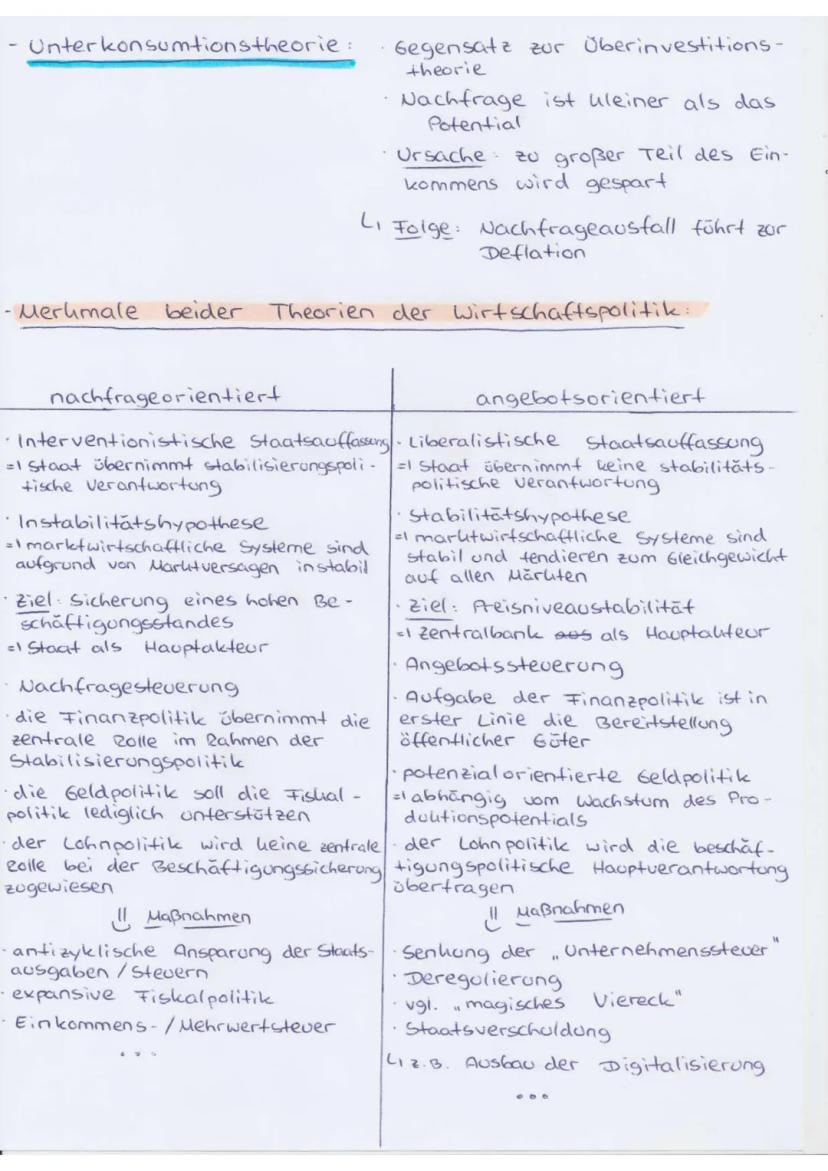 - Unterkonsumtionstheorie:
· Gegensatz zur Überinvestitions-
theorie
· Nachfrage ist kleiner als das
Potential
· Ursache: zu großer Teil des Ein-
kommens wird gespart
↳ Folge: Nachfrageausfall führt zur
Deflation
- Merkmale beider Theorien der Wirtschaftspolitik:
nachfrageorientiert
· Interventionistische Staatsauffassung
=> Staat übernimmt stabilisierungspoli-
tische Verantwortung
· Instabilitätshypothese
=> marktwirtschaftliche Systeme sind
aufgrund von Marktversagen instabil
· Ziel: Sicherung eines hohen Be-
schäftigungsstandes
=> Staat als Hauptakteur
· Nachfragesteuerung
· die Finanzpolitik übernimmt die
zentrale Rolle im Rahmen der
Stabilisierungspolitik
· die Geldpolitik soll die Fiskal-
politik lediglich unterstützen
· der Lohnpolitik wird keine zentrale
Rolle bei der Beschäftigungssicherung
zugewiesen
⇓ Maßnahmen
· antizyklische Ansparung der Staats-
ausgaben / Steuern
· expansive Fiskalpolitik
· Einkommens- / Mehrwertsteuer
...
angebotsorientiert
· Liberalistische Staatsauffassung
=> Staat übernimmt keine stabilitäts-
politische Verantwortung
· Stabilitätshypothese
=> marktwirtschaftliche Systeme sind
stabil und tendieren zum Gleichgewicht
auf allen Märkten
· Ziel: Preisniveaustabilität
=> Zentralbank aus als Hauptakteur
· Angebotssteuerung
· Aufgabe der Finanzpolitik ist in
erster Linie die Bereitstellung
öffentlicher Güter
· potenzialorientierte Geldpolitik
=> abhängig vom Wachstum des Pro-
duktionspotentials
· der Lohnpolitik wird die beschäf-
tigungspolitische Hauptverantwortung
übertragen
⇓ Maßnahmen
· Senkung der „Unternehmenssteuer"
· Deregulierung
· vgl. „magisches Viereck"
· Staatsverschuldung
↳ z.B. Ausbau der Digitalisierung
...